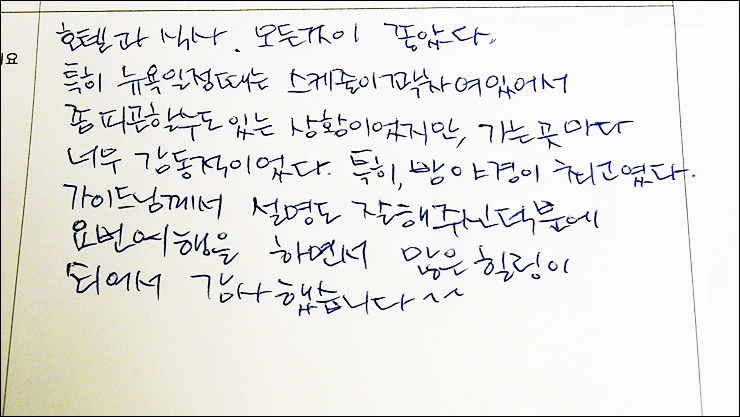 호텔과 식사. 모든것이 좋았다.
요
특히 뉴욕일정때는 스케줄이꽉차여있어서
좀 피곤할수도 있는 상황이었지만, 가는곳마다
너무 감동적이었다. 특히, 밤야경이 최고였다.
가이드님께서 설명도 잘해주신덕분에
요번여행을 하면서 많은힐링이
되어서 감사했습니다^^